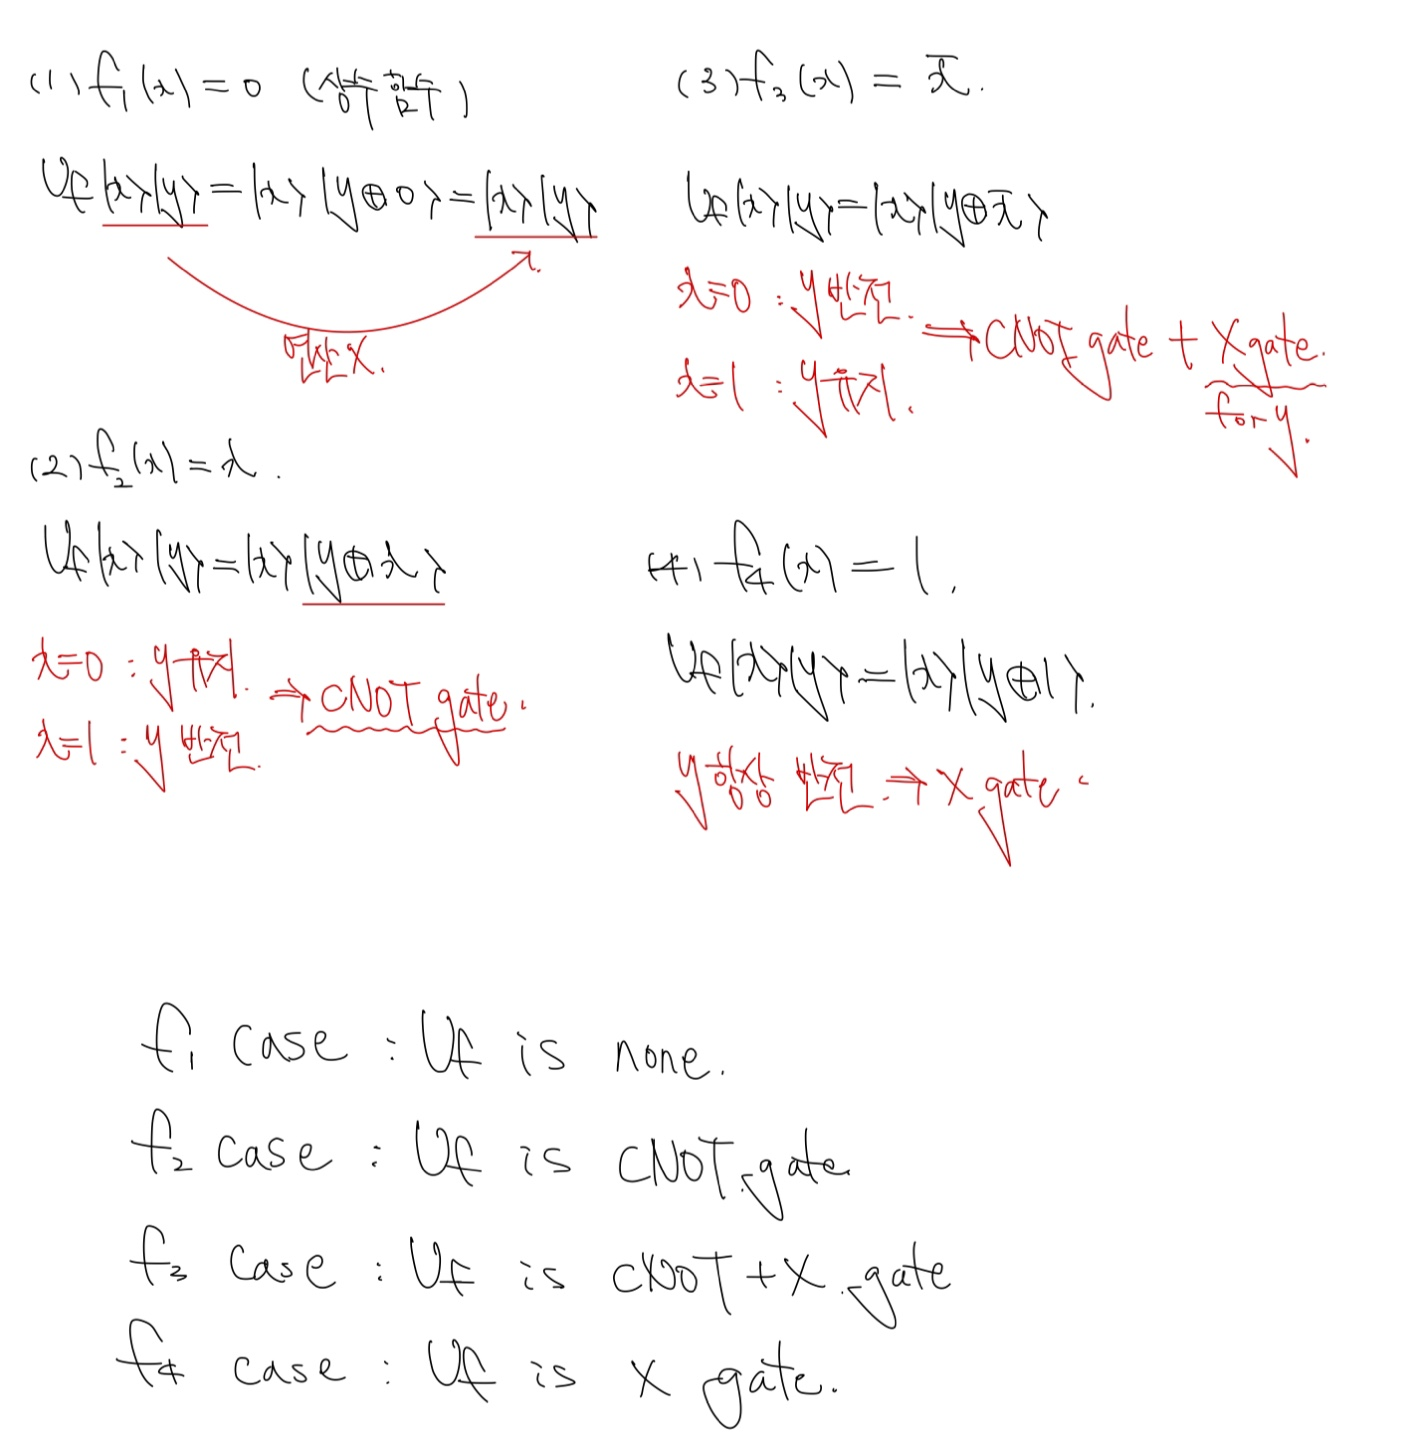 (1) f₁(x) = 0 (상수 함수)
Uf|x⟩|y⟩ = |x⟩|y⊕0⟩ = |x⟩|y⟩
연산 X.
(2) f₂(x) = x.
Uf|x⟩|y⟩ = |x⟩|y⊕x⟩
x=0 : y 유지. ⇒ CNOT gate.
x=1 : y 반전.
(3) f₃(x) = x̄.
Uf|x⟩|y⟩ = |x⟩|y⊕x̄⟩
x=0 : y 반전. ⇒ CNOT gate + X gate.
x=1 : y 유지.
for y.
(4) f₄(x) = 1.
Uf|x⟩|y⟩ = |x⟩|y⊕1⟩.
y 항상 반전. ⇒ X gate.
f₁ case : Uf is none.
f₂ case : Uf is CNOT gate.
f₃ case : Uf is CNOT + X gate
f₄ case : Uf is X gate.